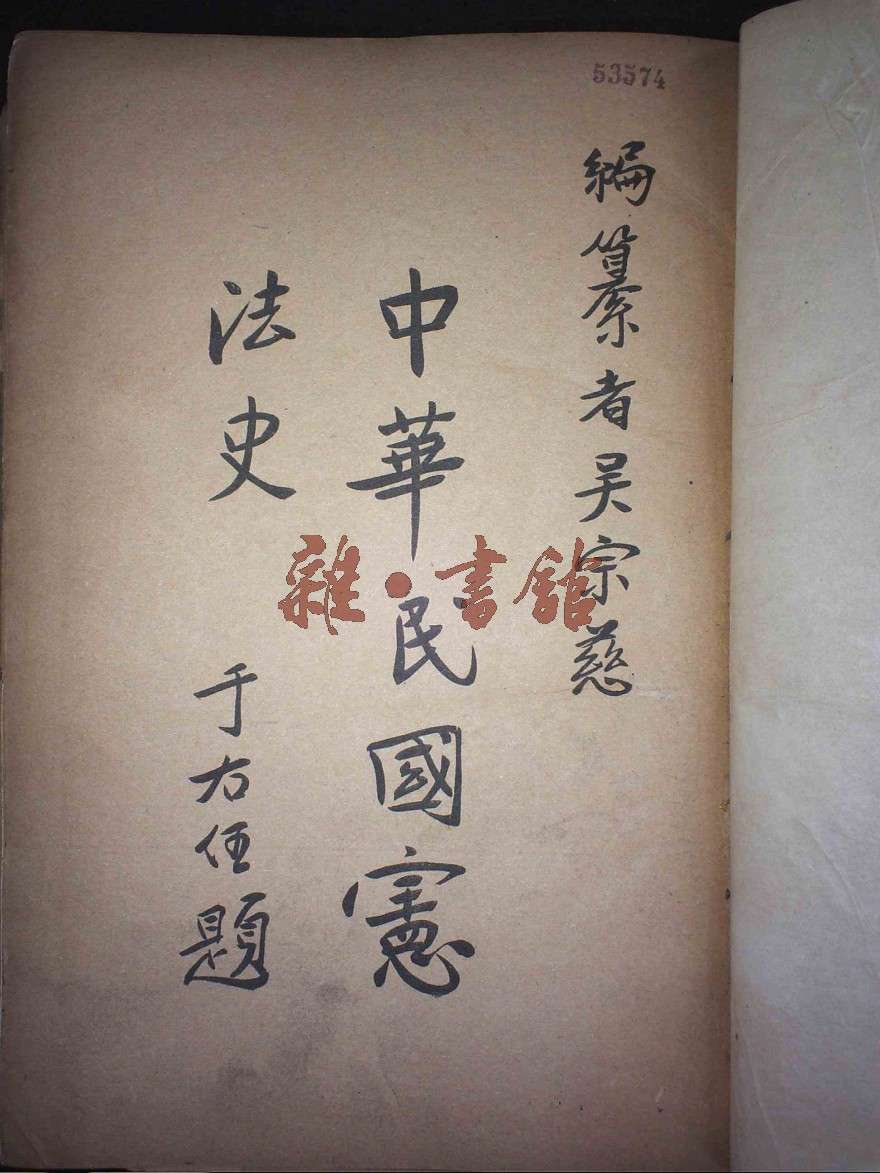 53574
編纂者吴宗慈
中華民國憲
法史
于右任題
雜·書館